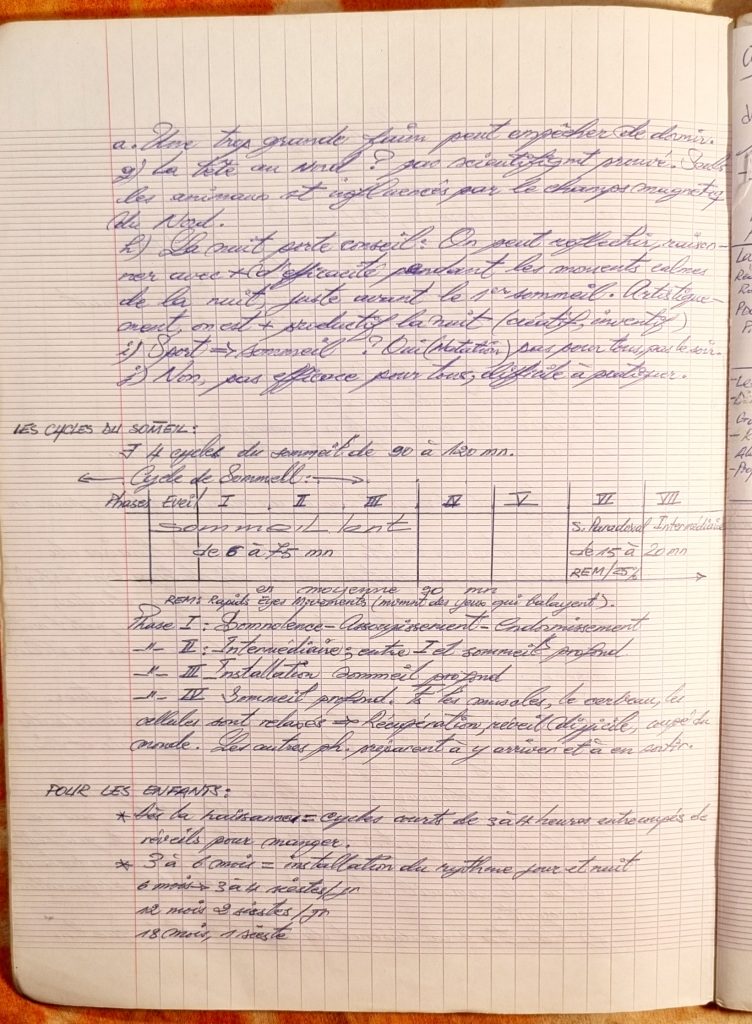 a. Une tres grande faim peut empêcher de dormir.
g) La tête au Nord ? pas scientifiqmt prouvé. Seuls
les animaux st influencés par le champs magnétiq
du Nord.
h) La nuit porte conseil : On peut réflechir, raison-
ner avec + d'efficacité pendant les moments calmes
de la nuit, juste avant le 1er sommeil. Artistique-
ment, on est + productif la nuit (créatif, inventif)
i) Sport => sommeil ? Oui (Natation) pas pour tous, pas le soir.
j) Non, pas efficace pour tous, difficile à pratiquer.
LES CYCLES DU SOMEIL :
∃ 4 cycles du sommeil de 90 à 120 mn.
Cycle de Sommeil :
Phases Eveil I II III IV V VI VII
Sommeil lent S. Paradoxal Intermédiaire
de 6 à 75 mn de 15 à 20 mn
REM/25%
en moyenne 90 mn
REM : Rapids Eyes Movements (mvmnt des yeux qui balayent).
Phase I : Somnolence - Assoupissement - Endormissement
-"- II : Intermédiaire ; entre I et sommeil profond
-"- III Installation sommeil profond
-"- IV Sommeil profond. Ts les muscles, le cerveau, les
cellules sont relaxés => Récupération, réveil difficile, coupé du
monde. Les autres ph. préparent à y arriver et à en sortir.
POUR LES ENFANTS :
* Dès la naissance = cycles courts de 3 à 4 heures entrecoupés de
réveils pour manger.
* 3 à 6 mois = installation du rythme jour et nuit
6 mois -> 3 à 4 siestes/jr
12 mois 2 siestes/jr
18 mois, 1 sieste